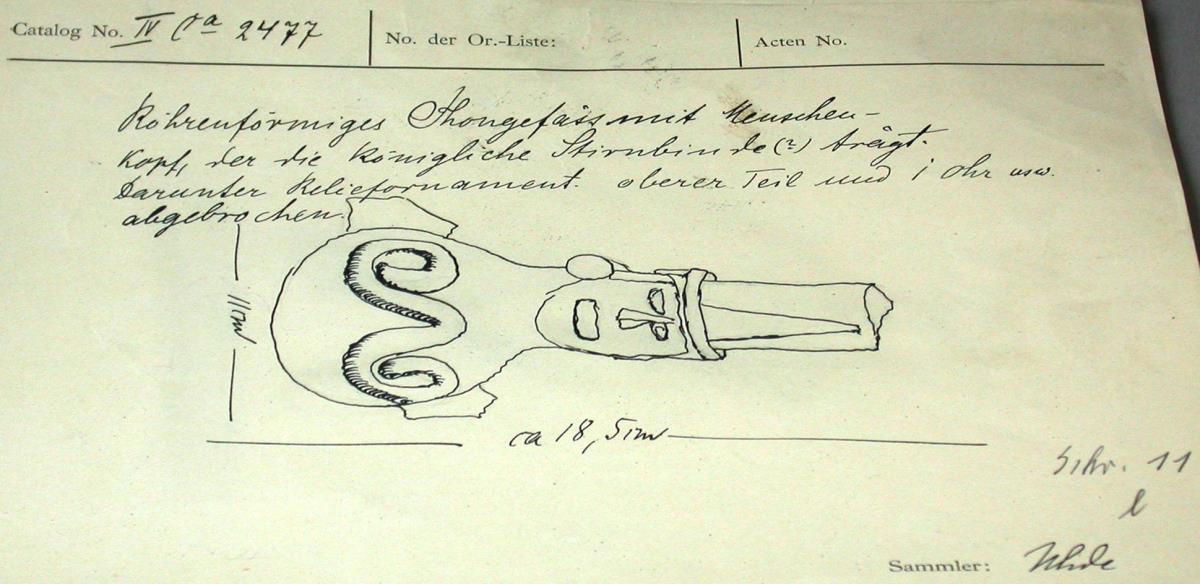 Catalog No. IV Ca 2477
No. der Or.-Liste:
Acten No.
Röhrenförmiges Thongefäss mit Menschen-
kopf, der die königliche Stirnbinde (?) trägt.
Darunter Reliefornament. oberer Teil und 1 Ohr usw.
abgebrochen.
11 cm
ca 18,5 cm
Schr. 11
l
Sammler: Uhde